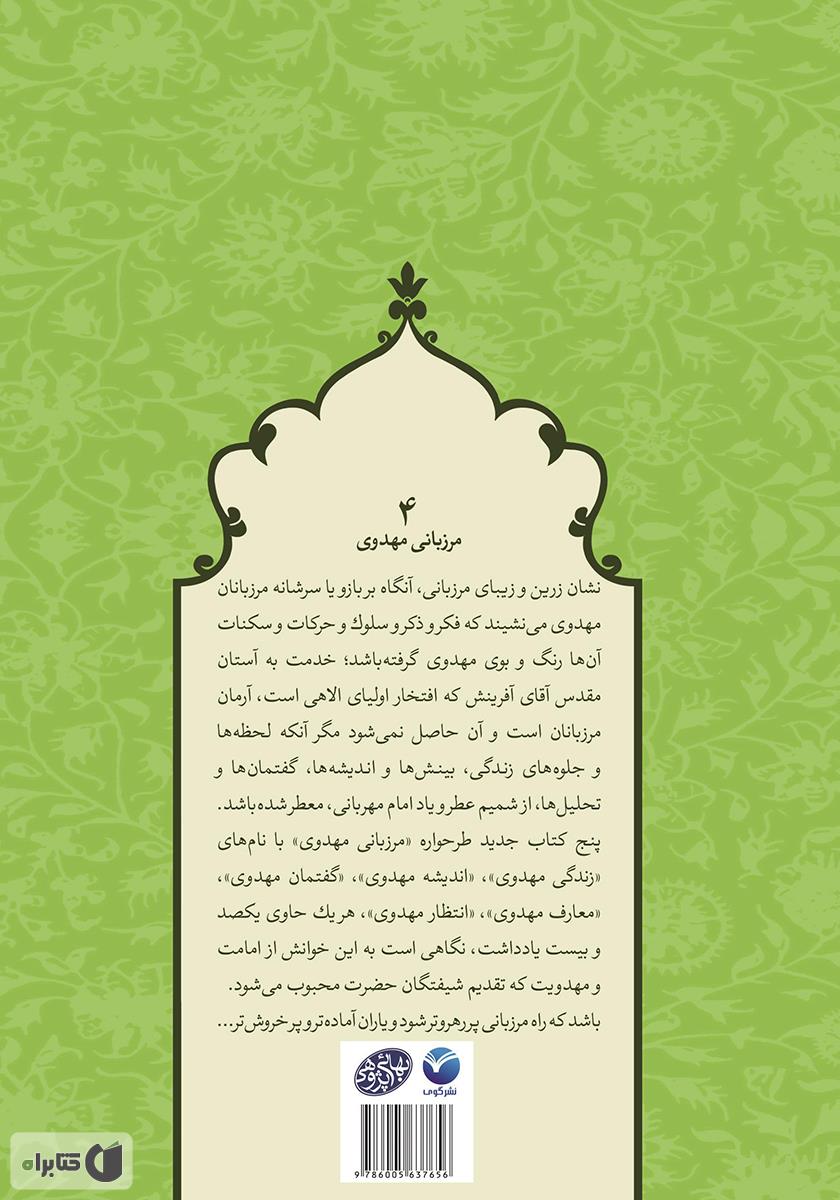 ۴
مرزبانی مهدوی
نشان زرین و زیبای مرزبانی، آنگاه بر بازو یا سرشانه مرزبانان
مهدوی می‌نشیند که فکر و ذکر و سلوك و حرکات و سکنات
آن‌ها رنگ و بوی مهدوی گرفته‌باشد؛ خدمت به آستان
مقدس آقای آفرینش که افتخار اولیای الاهی است، آرمان
مرزبانان است و آن حاصل نمی‌شود مگر آنکه لحظه‌ها
و جلوه‌های زندگی، بینش‌ها و اندیشه‌ها، گفتمان‌ها و
تحلیل‌ها، از شمیم عطر و یاد امام مهربانی، معطر شده‌باشد.
پنج کتاب جدید طرحواره «مرزبانی مهدوی» با نام‌های
«زندگی مهدوی»، «اندیشه مهدوی»، «گفتمان مهدوی»،
«معارف مهدوی»، «انتظار مهدوی»، هر یك حاوی یکصد
و بیست یادداشت، نگاهی است به این خوانش از امامت
و مهدویت که تقدیم شیفتگان حضرت محبوب می‌شود.
باشد که راه مرزبانی پر رهروتر شود و یاران آماده‌تر و پر خروش‌تر...
بهائی پژوهی
نشر گوی
9 786005 637656
کتابراه